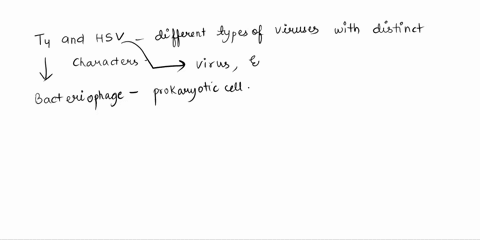 T4 and HSV - different types of viruses with distinct
characters. → virus, E
↓
Bacteriophage - prokaryotic cell.